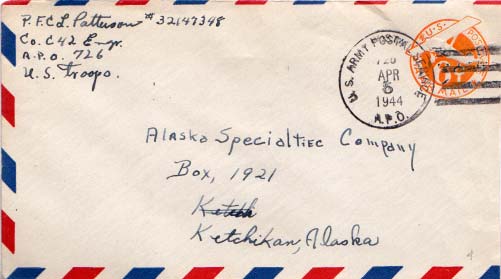 P.F.C. L. Patterson #32147348
Co. C 42 Engr.
A.P.O. 726
U.S. Troops.
U.S. ARMY POSTAL SERVICE
726
APR
5
1944
A.P.O.
U.S. POSTAGE
AIR MAIL
6
Alaska Specialtiec Company
Box, 1921
Ketch
Ketchikan, Alaska